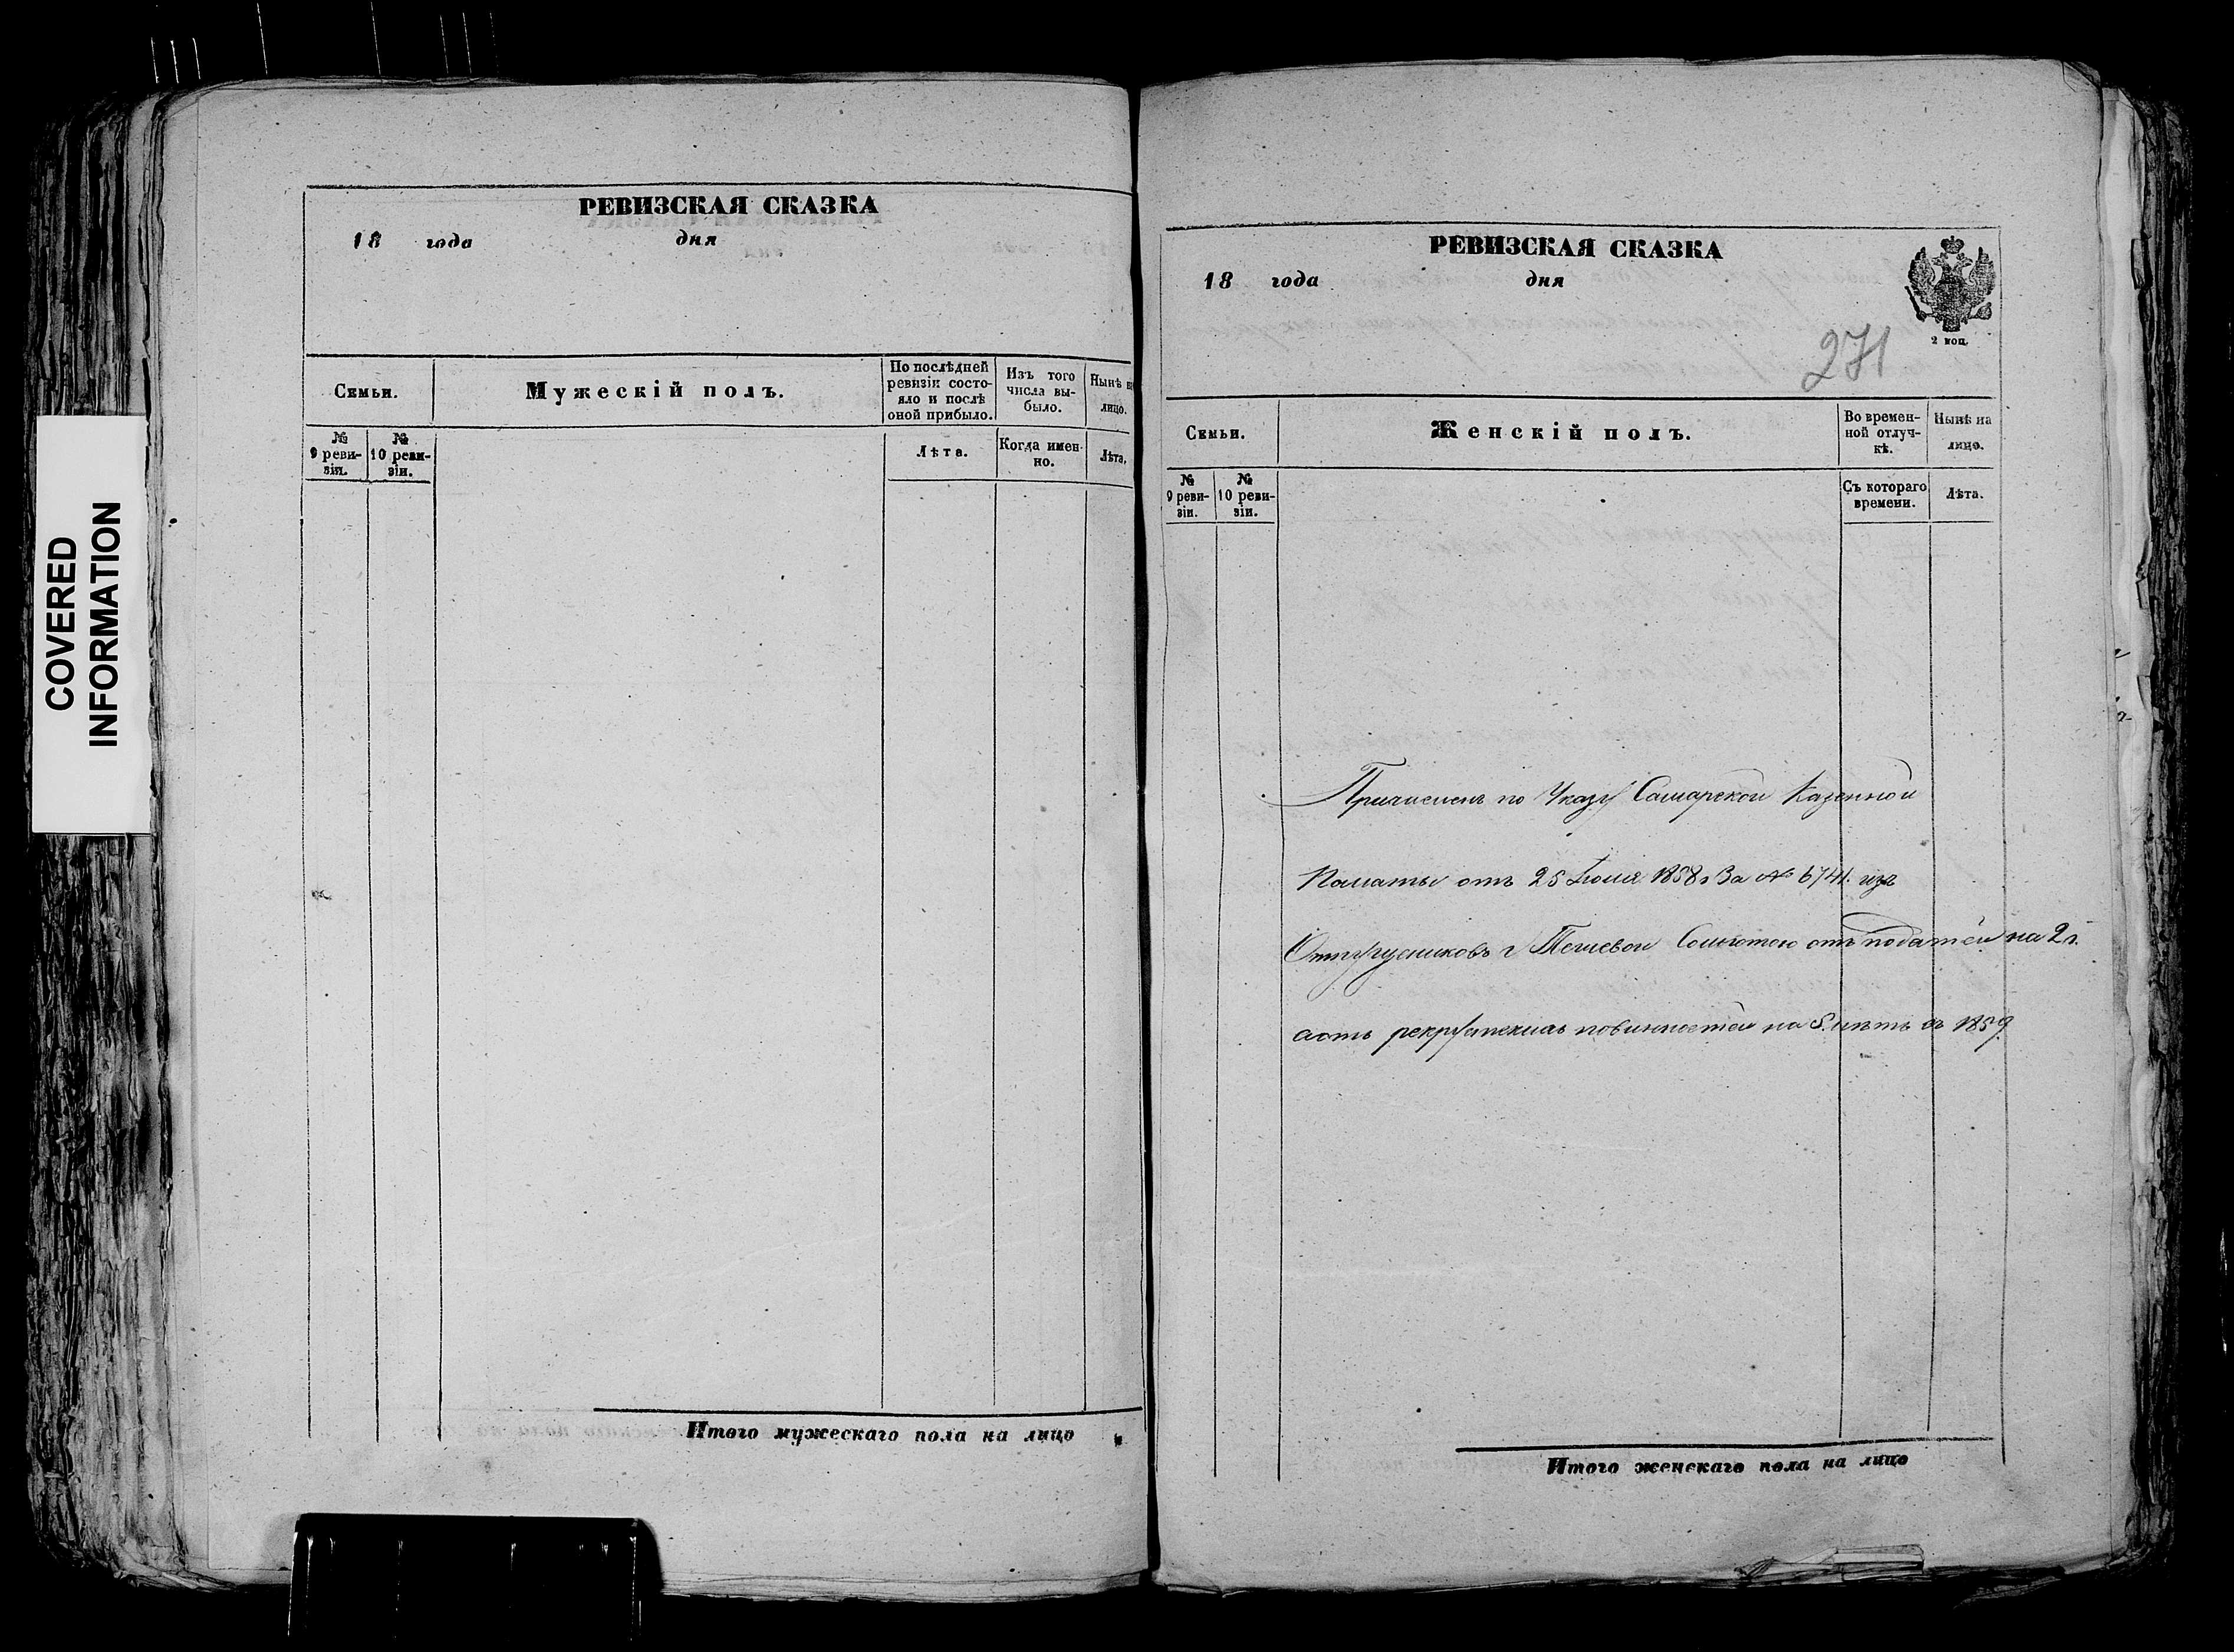 COVERED
INFORMATION
РЕВИЗСКАЯ СКАЗКА
18 года дня
Семьи.
Мужескій полъ.
По послѣдней
ревизіи состо-
яло и послѣ
оной прибыло.
Изъ того
числа вы-
было.
Нынѣ на
лицо.
№
9 реви-
зіи.
№
10 реви-
зіи.
Лѣта.
Когда имен-
но.
Лѣта.
Итого мужескаго пола на лицо
РЕВИЗСКАЯ СКАЗКА
18 года дня
2 коп.
271
Семьи.
Женскій полъ.
Во времен-
ной отлуч-
кѣ.
Нынѣ на
лицо.
№
9 реви-
зіи.
№
10 реви-
зіи.
Съ котораго
времени.
Лѣта.
Причисленъ по Указу Самарской Казенной
Палаты отъ 25 Іюля 1858 г За № 6741. изъ
отъ податей на 2 г.
рекрутских повинностей на 5. лѣтъ съ 1859
Итого женскаго пола на лицо